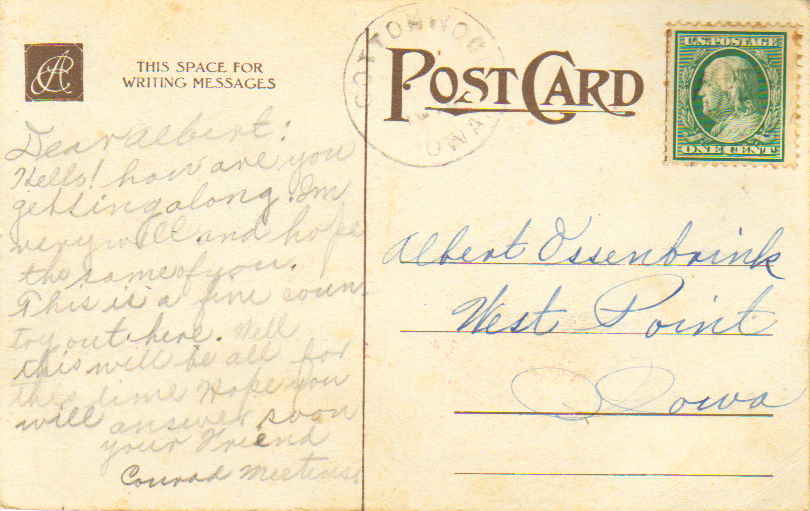 THIS SPACE FOR
WRITING MESSAGES
COTTONWOOD
IOWA
POST CARD
U.S. POSTAGE
ONE CENT
Dear Albert:
Hello! how are you
getting along. Im
very well and hope
the same of you.
This is a fine coun-
try out here. Well
this will be all for
this time Hope you
will answer soon
your Friend
Conrad
Albert Ossenbrink
West Point
Iowa